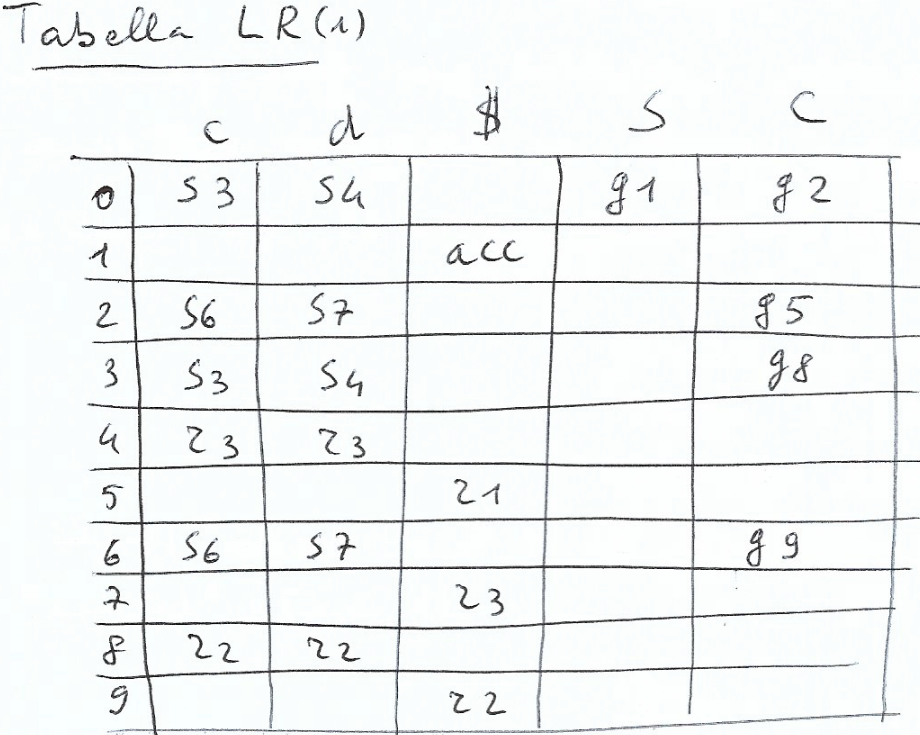 Tabella LR(1)
c d $ S C
0 s3 s4 g1 g2
1 acc
2 s6 s7 g5
3 s3 s4 g8
4 r3 r3
5 r1
6 s6 s7 g9
7 r3
8 r2 r2
9 r2